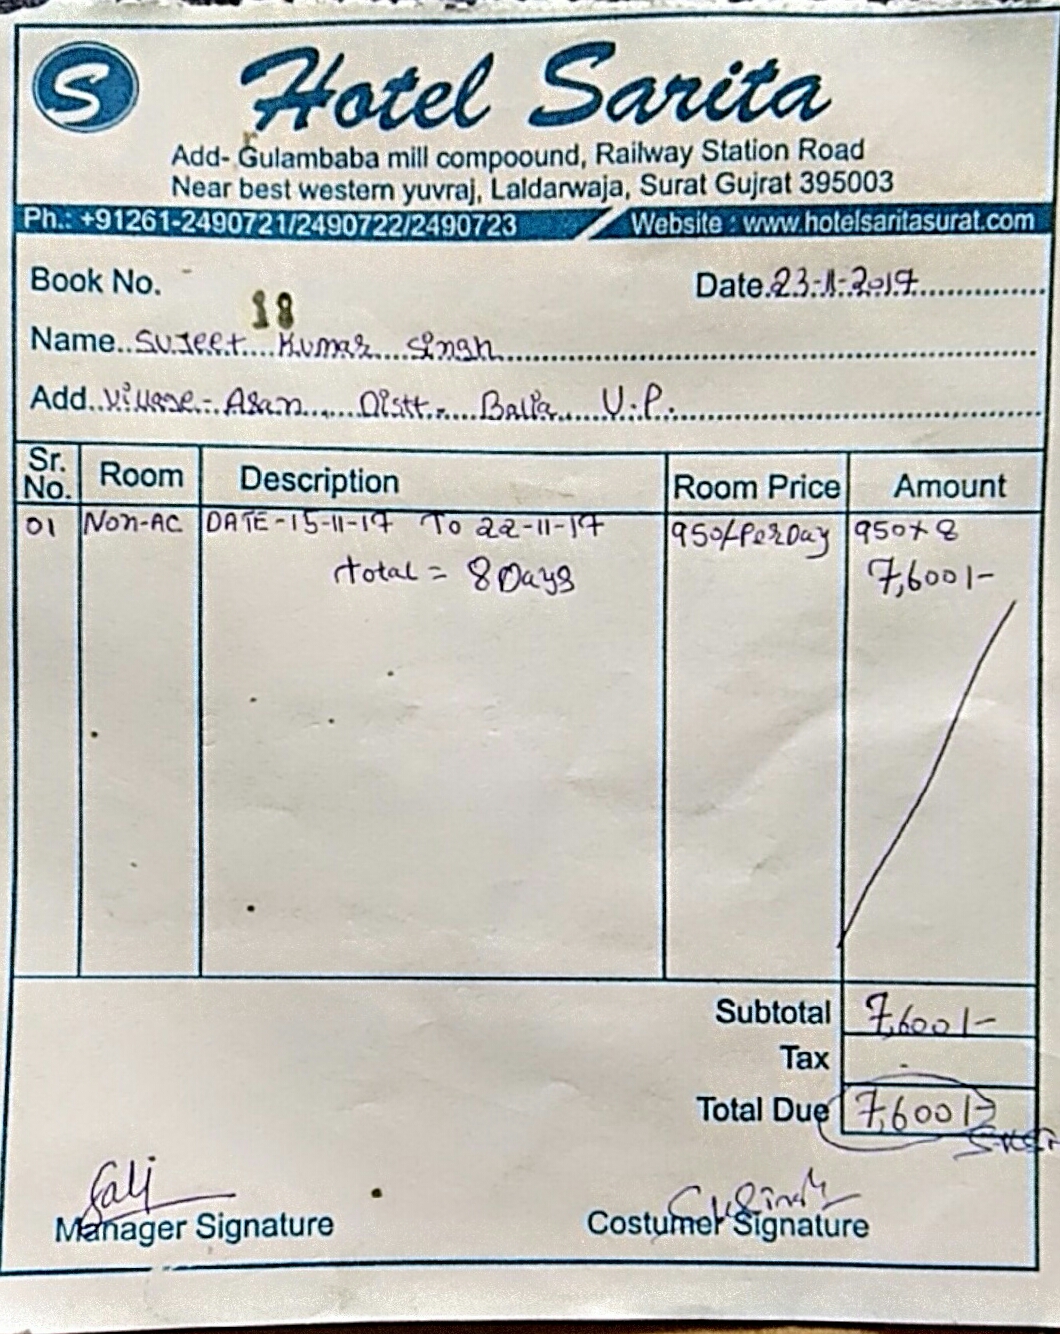 S Hotel Sarita
Add- Gulambaba mill compoound, Railway Station Road
Near best western yuvraj, Laldarwaja, Surat Gujrat 395003
Ph.: +91261-2490721/2490722/2490723 Website : www.hotelsaritasurat.com
Book No. 18 Date.23-11-2017
Name Sujeet Kumar Singh
Add. Village - Asan Distt. Balia U.P.
Sr. No. Room Description Room Price Amount
01 Non-AC DATE-15-11-17 To 22-11-17 950/-Per Day 950x8
total = 8 Days 7,600/-
Subtotal 7,600/-
Tax -
Total Due 7,600/-
Manager Signature Costumer Signature